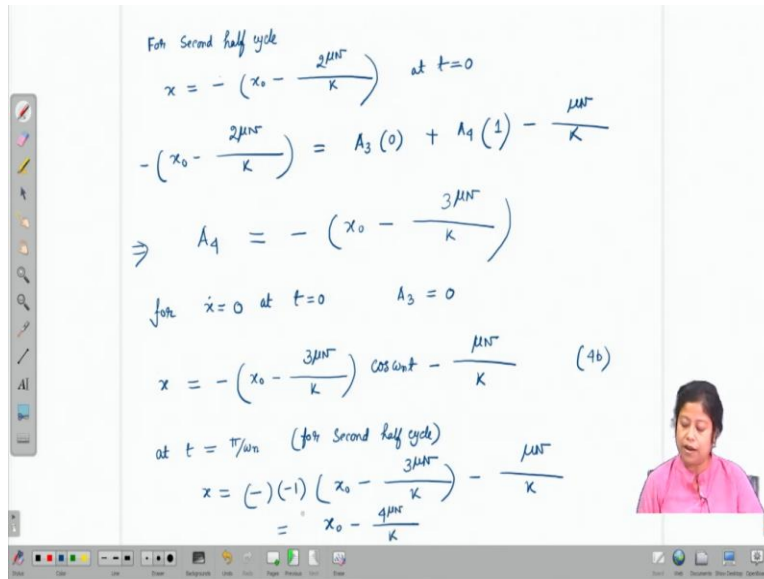 For second half cycle
x = - (x₀ - 2μN/K) at t=0
-(x₀ - 2μN/K) = A₃(0) + A₄(1) - μN/K
⇒ A₄ = - (x₀ - 3μN/K)
for ẋ=0 at t=0 A₃ = 0
x = -(x₀ - 3μN/K) cos ωₙt - μN/K (4b)
at t = π/ωₙ (for second half cycle)
x = (-)(-1)(x₀ - 3μN/K) - μN/K
= x₀ - 4μN/K